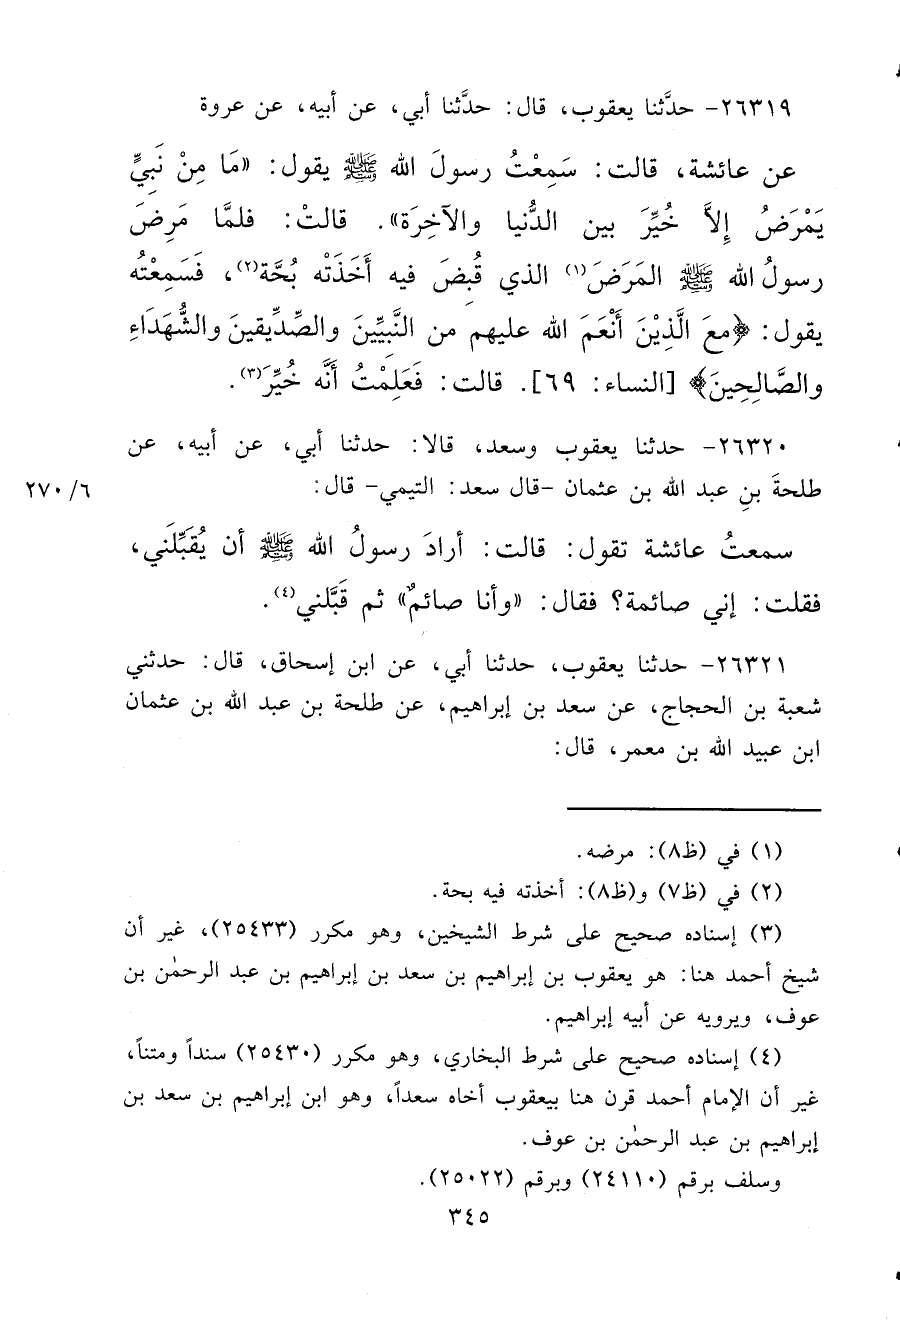 ٢٦٣١٩- حدَّثنا يعقوب، قال: حدَّثنا أبي، عن أبيه، عن عروة
عن عائشة، قالت: سَمِعْتُ رسولَ الله ﷺ يقول: «مَا مِنْ نَبِيٍّ
يَمْرَضُ إِلاَّ خُيِّرَ بين الدُّنيا والآخِرَة». قالتْ: فلمَّا مَرِضَ
رسولُ الله ﷺ المَرَضَ(١) الذي قُبِضَ فيه أَخَذَتْه بُحَّة(٢)، فَسَمِعْتُه
يقول: ﴿معَ الَّذِيْنَ أَنْعَمَ الله عليهم من النَّبيِّينَ والصِّدِّيقينَ والشُّهَدَاءِ
والصَّالِحِينَ﴾ [النساء: ٦٩]. قالت: فَعَلِمْتُ أَنَّه خُيِّرَ(٣).
٢٦٣٢٠- حدثنا يعقوب وسعد، قالا: حدثنا أبي، عن أبيه، عن
طلحةَ بنِ عبد الله بن عثمان -قال سعد: التيمي- قال:
٢٧٠/٦
سمعتُ عائشة تقول: قالت: أرادَ رسولُ الله ﷺ أن يُقَبِّلَني،
فقلت: إني صائمة؟ فقال: «وأنا صائمٌ» ثم قَبَّلني(٤).
٢٦٣٢١- حدثنا يعقوب، حدثنا أبي، عن ابن إسحاق، قال: حدثني
شعبة بن الحجاج، عن سعد بن إبراهيم، عن طلحة بن عبد الله بن عثمان
ابن عبيد الله بن معمر، قال:
(١) في (ظ٨): مرضه.
(٢) في (ظ٧) و(ظ٨): أخذته فيه بحة.
(٣) إسناده صحيح على شرط الشيخين، وهو مكرر (٢٥٤٣٣)، غير أن
شيخ أحمد هنا: هو يعقوب بن إبراهيم بن سعد بن إبراهيم بن عبد الرحمٰن بن
عوف، ويرويه عن أبيه إبراهيم.
(٤) إسناده صحيح على شرط البخاري، وهو مكرر (٢٥٤٣٠) سنداً ومتناً،
غير أن الإمام أحمد قرن هنا بيعقوب أخاه سعداً، وهو ابن إبراهيم بن سعد بن
إبراهيم بن عبد الرحمٰن بن عوف.
وسلف برقم (٢٤١١٠) وبرقم (٢٥٠٢٢).
٣٤٥